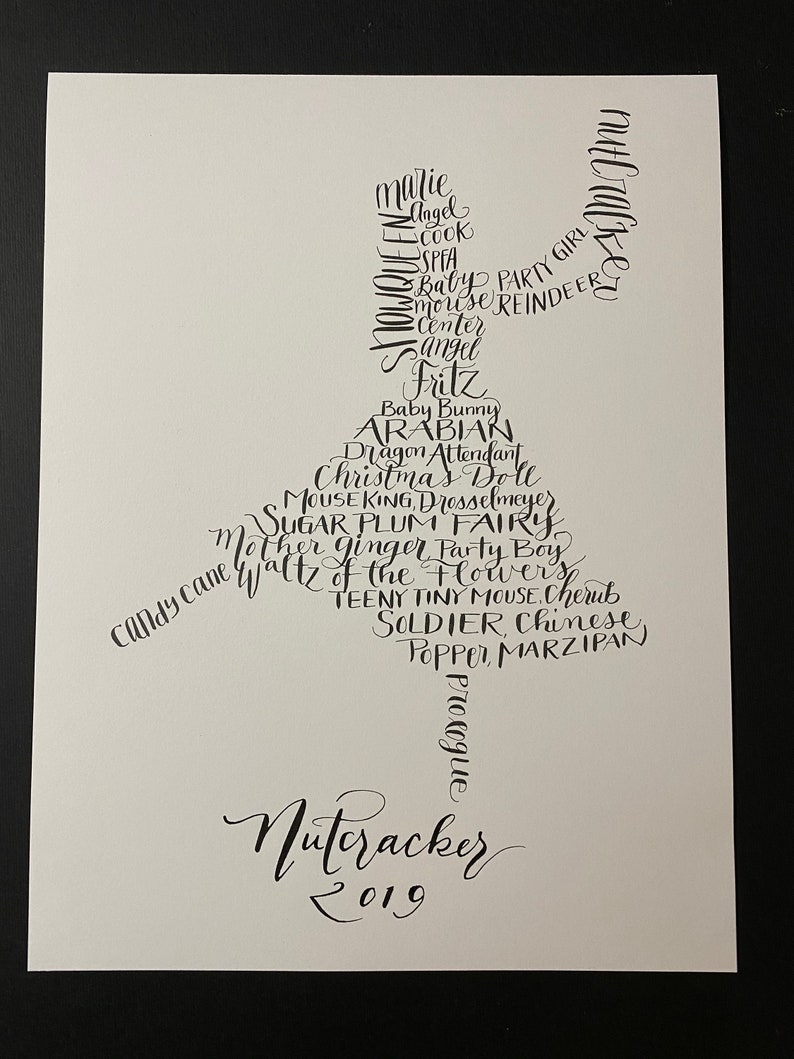 nutcracker
marie
SNOWQUEEN
Angel
COOK
SPFA
Baby
mouse
center
angel
PARTY GIRL
REINDEER
Fritz
Baby Bunny
ARABIAN
Dragon Attendant
Christmas Doll
MOUSE KING, Drosselmeyer
SUGAR PLUM FAIRY
Mother ginger, Party Boy
candy cane
Waltz of the Flowers
TEENY TINY MOUSE, Cherub
SOLDIER, Chinese,
Popper, MARZIPAN
prologue
Nutcracker
2019